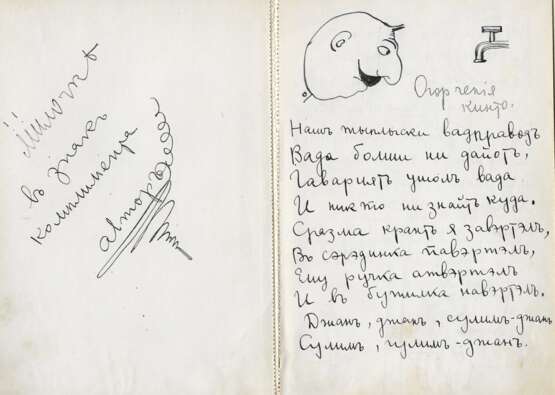 въ знакъ
комплимента
авторъ
Огорченія
кинто.
Нашъ тыплыски вадправодъ
Вада болши ни дайотъ,
Гавариятъ ушолъ вада
И никто ни знайтъ куда.
Сразма крантъ я завэртэлъ,
Въ сэрэдинка павэртэлъ,
Ешу ручка атвэртэлъ
И въ бутилка навэртэлъ.
Джанъ, джанъ, сулимъ-джанъ
Сулимъ, гулимъ-джанъ.